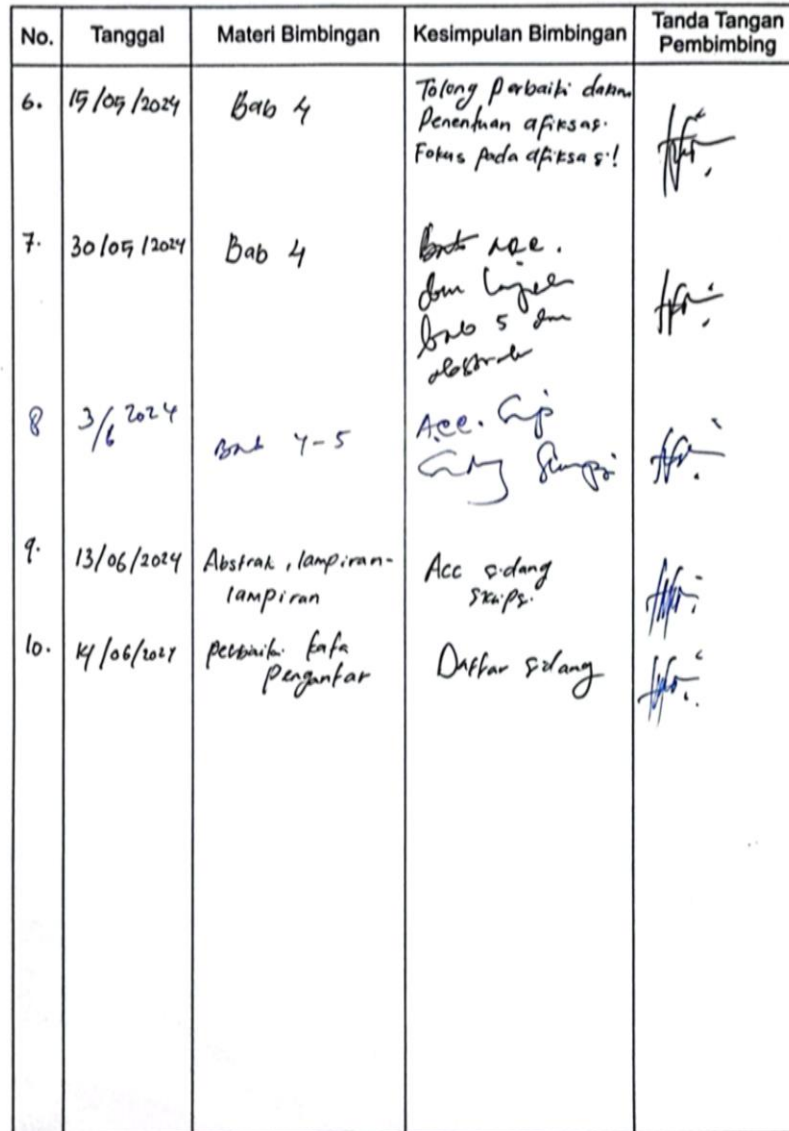 No. Tanggal Materi Bimbingan Kesimpulan Bimbingan Tanda Tangan Pembimbing
6. 15/05/2024 Bab 4 Tolong perbaiki dalam
Penentuan afiksasi.
Fokus pada afiksasi!
7. 30/05/2024 Bab 4 Acc.
dan
bab 5 dan
abstrak
8 3/6 2024 Bab 4-5 Acc.
Skripsi
9. 13/06/2024 Abstrak, lampiran-
lampiran
Acc sidang
skripsi
10. 14/06/2024 perbaiki kata
Pengantar
Daftar sidang